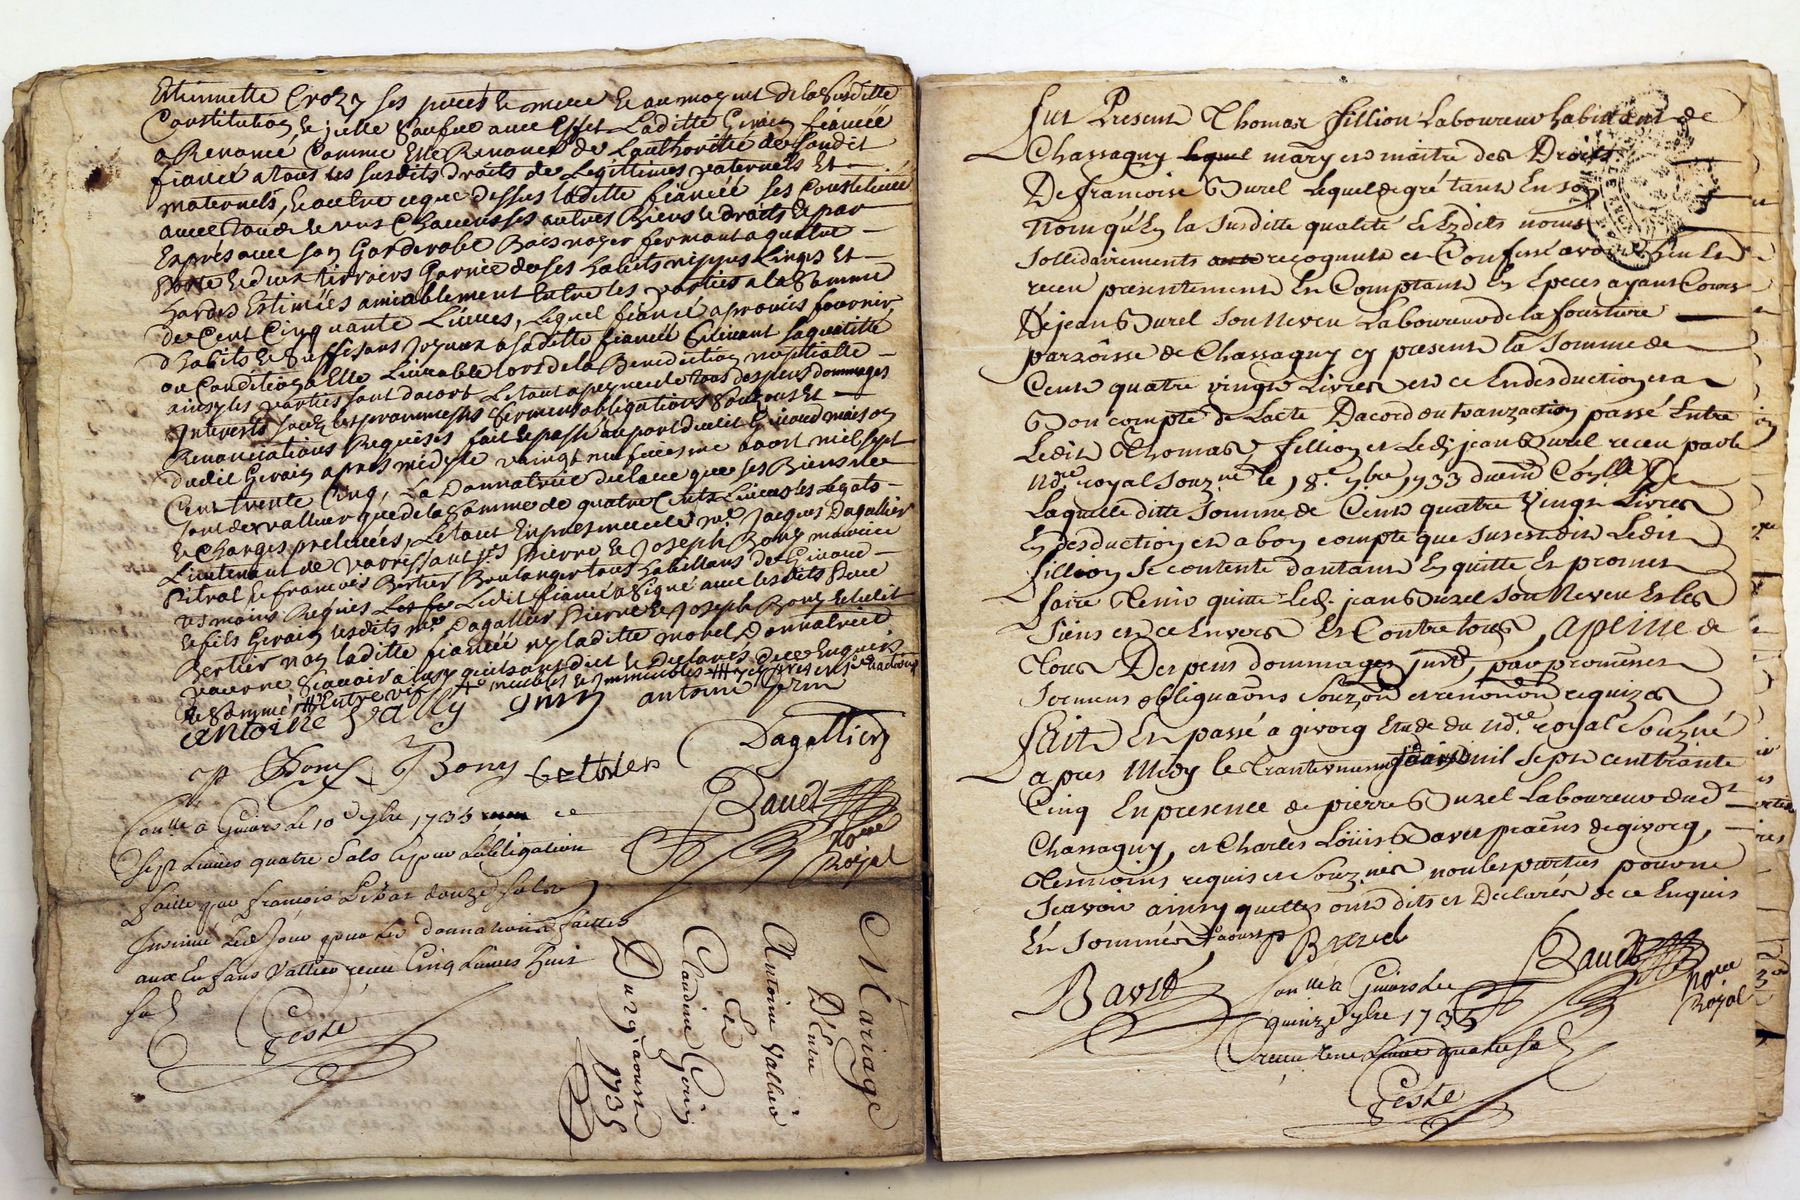 Estiennette Crozy ses pere et mere et au moyent de la susditte
Constitution et icelle sauf avec effet Laditte Gerin fiancée
a Renoncé comme Elle Renonce de Lauthorité de sondit
fiancé a tous les susdits droits de Legittimes paternels Et
maternels, et outre ce que dessus laditte fiancée ses constitue
avec tous et uns Chacuns ses autres Biens et droits et par
Exprés avec son Garderobe Bois noyer fermant a quatre
porte et deux tirroirs Garnie de ses habits nippes Linges Et
hardes Estimées amiablement Entre les parties a la somme
de Cent Cinquante Livres, Lequel fiancé a promis fournir
d'habits et suffisans joyaux a saditte fiancée suivant la qualitté
ou Condition a Elle Livrable lors de la Benediction nuptialle
ainsy les parties sont dacort Le tout a peyne de tous despens dommages
Interests soubs les promesses serment obligations soumis Et
Renonciations Requises fait et passé au port dudit Givord maison
dudit Gerin apres midy le vaingt neuvieme aoust mil sept
Cent trente Cinq, La Donnatrice declare que ses Biens ne
sont de valleur que de la somme de quatre Cents Livres les Legats
et Charges prelevées, Le tout En presence de Mr. Jacques Dagallier
Lieutenant de Pierre et Joseph Bony maurice
Pitrat et francois Bertier Boulanger tous habittans de Givord
tesmoins Requis Ledit fiancé a signé avec lesdits
et fils Gerin lesdits Mr. Dagallier Pierre et Joseph Bony et ledit
Bertier non laditte fiancée ny laditte morel Donnatrice
pour ne sçavoir ainsy quils ont dit et Declarés de ce Enquis
et sommés Entre vifs meubles et immeubles
antoine Vally Gerin antoine Gerin
Dagallier
Bony Bony bertier
Bauet
Nore
Royal
Conllé a Givors le 10e 7bre 1735 ce
Sept Livres quatre sols et pour Lobligation
faitte par francois douze sols
Insinué led. Jour pour les donnations faittes
aux En fans Vallier receu Cinq Livres huit
sols
Geste
Mariage
D'Entre
Antoine Vallier
Et
Claudine Gerin
Du 29. aoust
1735
fut Present Thomas fillion Laboureur habitant de
Chassagny mary et maitre des Droits
De francoise Burel lequel de gré tant En son
Nom qu'En la susditte qualité Et Esdits noms
sollidairement recognut et Confesse avoir Eu Et
receu presentement En Comptant En Especes ayant Cours
De jean Burel son Neveu Laboureur de la fourtiere
parroisse de Chassagny cy present la somme de
Cent quatre vingts Livres et ce En desduction et a
Bon compte de Lacte Dacord ou tranzaction passé Entre
Ledit Thomas fillion et Led. jean Burel receu par le
Nore. royal souzné le 18e. 7bre 1733 duemt Conllé De
Laquelle ditte somme de Cent quatre Vingts Livres
En desduction et a bon compte que sus est dit Ledit
fillion se contente dautant En quitte Et promet
faire tenir quitte led. jean Burel son Neveu Et les
siens et ce Envers Et Contre tous, a peine de
tous Despens dommages jnrts, par promesses
serment obliguaons souzons et renonons requizes
fait Et passé a givorcq Etude du Nore royal souzné
apres Midy le mil sept cent trante
Cinq En presence de pierre Burel Laboureur dudt
Chassagny, et Charles Loüis Bavet praens de givorcq,
tesmoins requis et souznes non les parties pour ne
sçavoir ainsy quelles ont dits et Declarés de ce Enquis
Et Sommées p Burel
Bavet
Bauet
Nore
Royal
Conllé a Givors le
quinze 7bre 1735
receu une Livre quatre sols
Geste